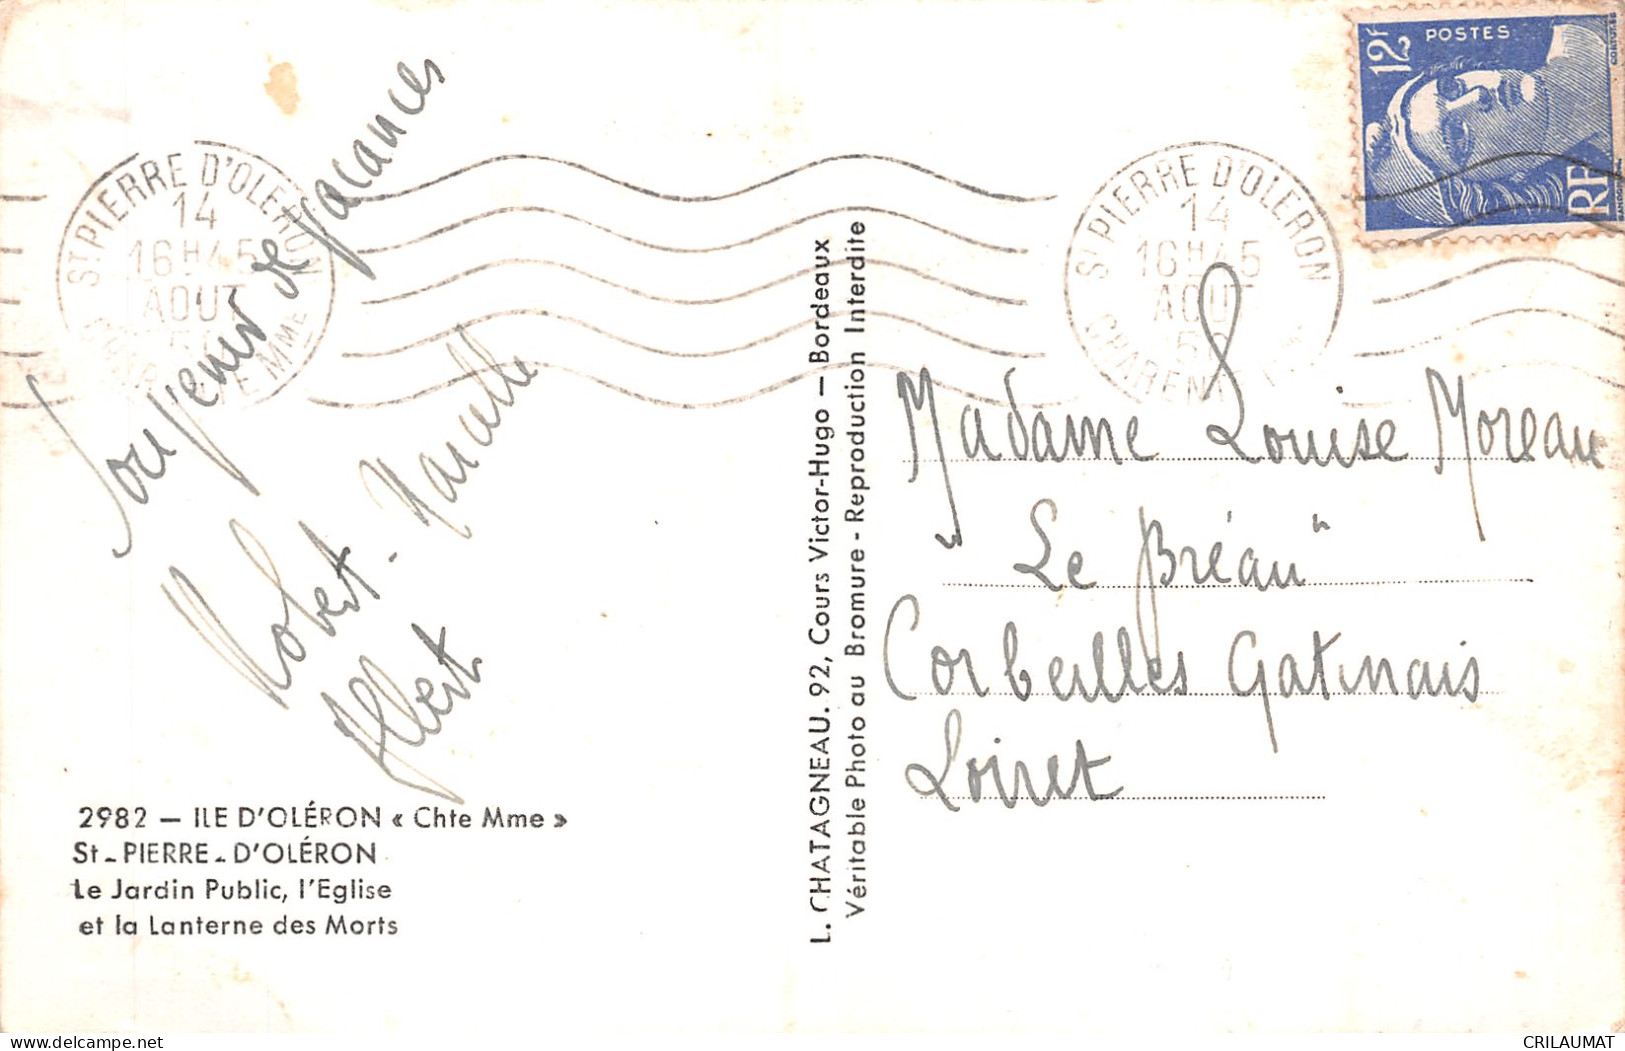 Souvenir de vacances
Robert - Marcelle
Albert
2982 — ILE D'OLÉRON « Chte Mme »
St-PIERRE-D'OLÉRON
Le Jardin Public, l'Eglise
et la Lanterne des Morts
L. CHATAGNEAU. 92, Cours Victor-Hugo — Bordeaux
Véritable Photo au Bromure - Reproduction Interdite
ST PIERRE D'OLERON
14
16H45
AOUT
MME
ST PIERRE D'OLERON
14
16H45
AOUT
50
12F
POSTES
RF
Madame Louise Moreau
"Le Bréau"
Corbeilles Gatinais
Loiret
www.delcampe.net
CRILAUMAT